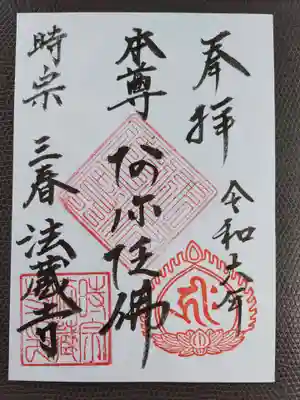 奉拝
令和六年
本尊
阿弥陀佛
時宗
三春
法蔵寺